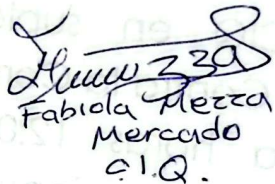 Fabiola Mezza
Mercado
C.I.Q.